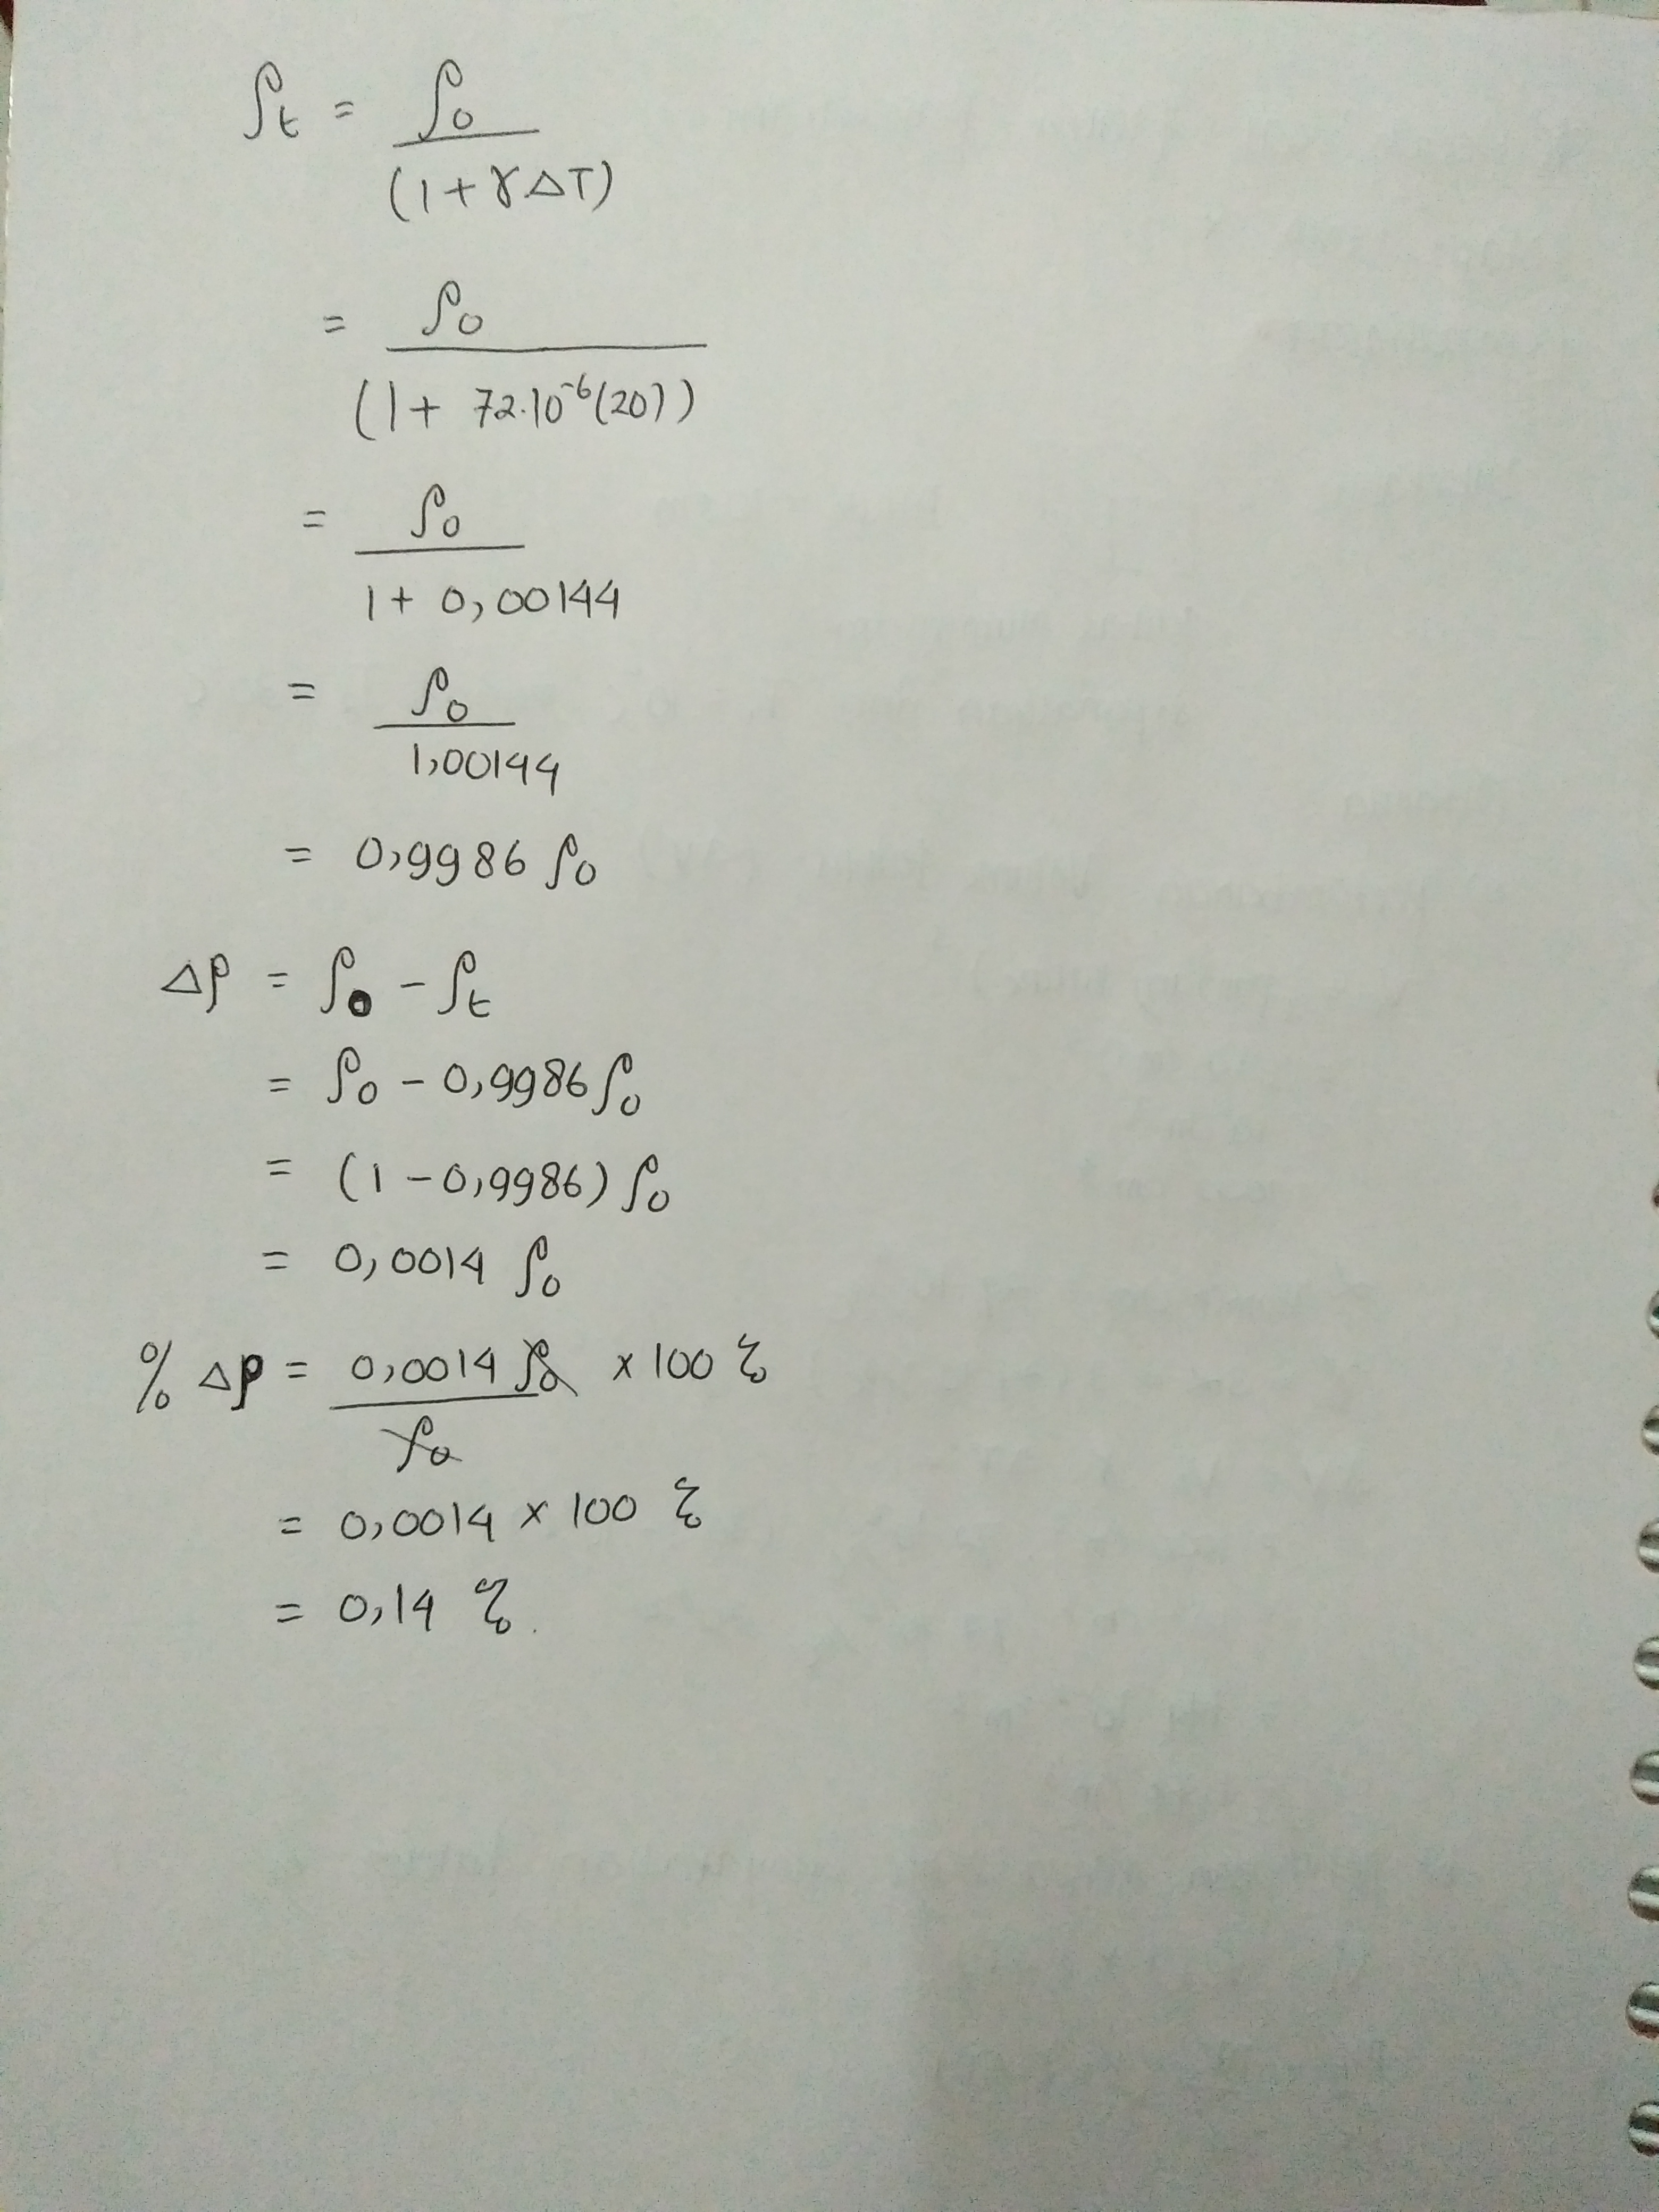 ρt = ρ0
(1 + γΔT)
= ρ0
(1 + 72.10⁻⁶(20))
= ρ0
1 + 0,00144
= ρ0
1,00144
= 0,9986 ρ0
Δρ = ρ0 - ρt
= ρ0 - 0,9986 ρ0
= (1 - 0,9986) ρ0
= 0,0014 ρ0
% Δρ = 0,0014 ρ0 x 100 %
ρ0
= 0,0014 x 100 %
= 0,14 %.